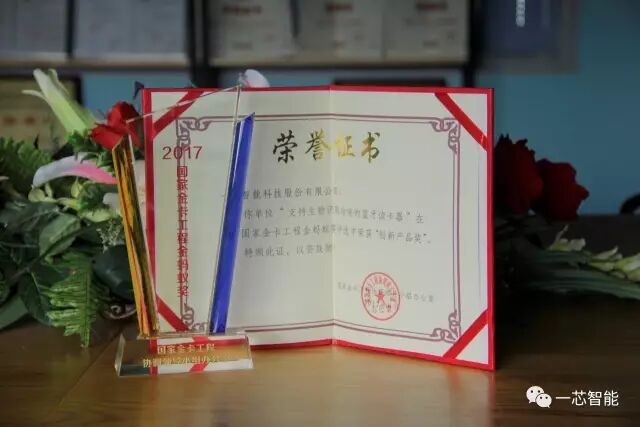 荣誉证书
2017
国家金卡工程金蚂蚁奖
智能科技股份有限公司:
你单位“支持生物识别 的蓝牙读卡器”在
国家金卡工程金蚂蚁 评选中荣获“创新产品奖”。
特颁此证,以资鼓励
国家金卡 办公室
国家金卡工程
协调领导小组办公
一芯智能